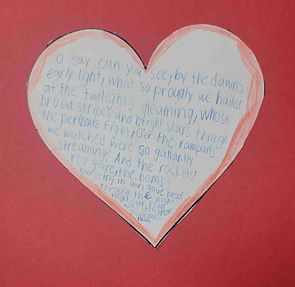 O say can you see, by the dawn's
early light, what so proudly we hailed
at the twilight's gleaming, whose
broad stripes and bright stars through
the perilous fight, O'er the ramparts
we watched were so gallantly
streaming. And the rockets'
red glare, the bombs
in air gave proof
through the night
that our flag
was